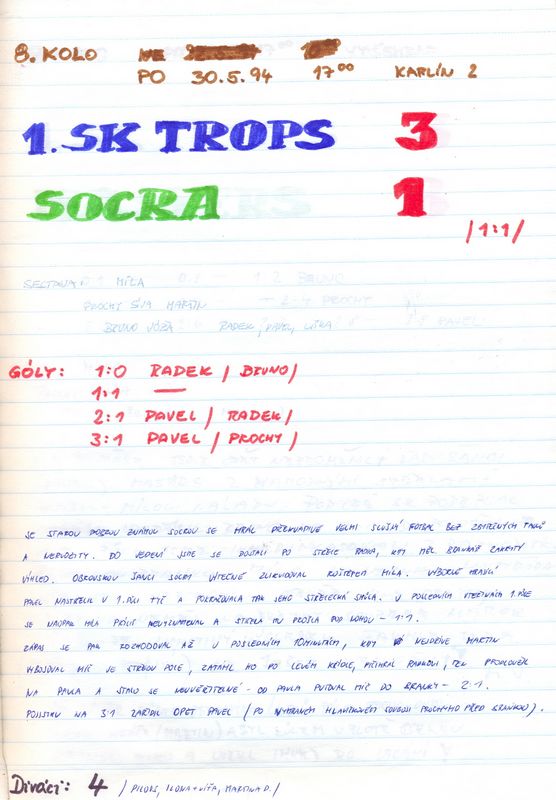 8. KOLO NE
PO 30.5.94 17⁰⁰ KARLÍN 2
1. SK TROPS 3
SOCRA 1
/1:1/
SESTAVA: MÍLA
PROCHY SÍVA MARTIN
BRUNO JÓŽA RADEK, PAVEL, LIŠKA
GÓLY: 1:0 RADEK / BRUNO/
1:1 —
2:1 PAVEL / RADEK/
3:1 PAVEL / PROCHY/
SE STAROU DOBROU ZNÁMOU SOCROU SE HRÁL PŘEKVAPIVĚ VELMI SLUŠNÝ FOTBAL BEZ ZBYTEČNÝCH FAULŮ
A NERVOZITY. DO VEDENÍ JSME SE DOSTALI PO STŘELE RADKA, KDY MĚL BRANKÁŘ ZAKRYTÝ
VÝHLED. OBROVSKOU ŠANCI SOCRY VÝTEČNĚ ZLIKVIDOVAL ROZŠTĚPEM MÍLA. VÝBORNĚ HRAJÍCÍ
PAVEL NASTŘELIL V 1. PŮLI TYČ A POKRAČOVALA TAK JEHO STŘELECKÁ SMŮLA. V POSLEDNÍCH VTEŘINÁCH 1. PŮLE
SE NAOPAK MÍLA PŘÍLIŠ NEVYZNAMENAL A STŘELA MU PROŠLA POD NOHOU - 1:1.
ZÁPAS SE PAK ROZHODOVAL AŽ V POSLEDNÍM 10MINUTÍ, KDY NEJDŘÍVE MARTIN
VYBOJOVAL MÍČ VE STŘEDU POLE, ZATÁHL HO PO LEVÉM KŘÍDLE, PŘIHRÁL RADKOVI, TEN PRODLOUŽIL
NA PAVLA A STALO SE NEUVĚŘITELNÉ - OD PAVLA PUTOVAL MÍČ DO BRANKY - 2:1.
POJISTKU NA 3:1 ZAŘÍDIL OPĚT PAVEL (PO VYHRANÉM HLAVIČKOVÉM SOUBOJI PROCHYHO PŘED BRANKOU).
Diváci: 4 / PILOUS, ILONA+VÍŤA, MARTINA D./